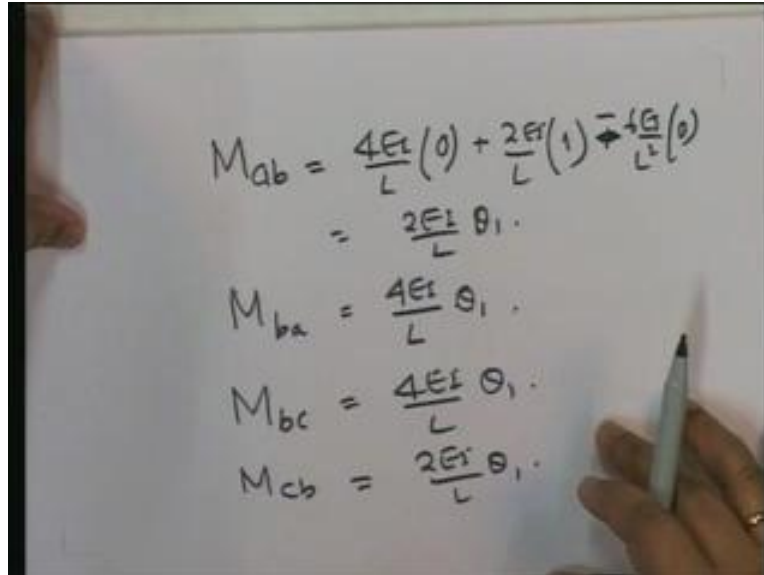 Mab = 4EI/L (0) + 2EI/L (1) - 6EI/L² (0)
= 2EI/L θ₁.
Mba = 4EI/L θ₁.
Mbc = 4EI/L θ₁.
Mcb = 2EI/L θ₁.